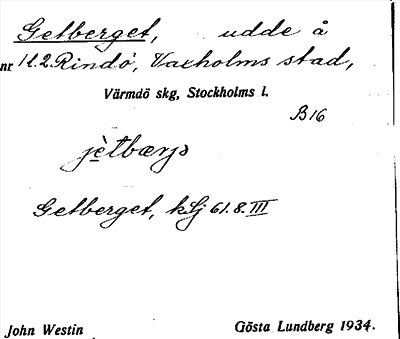 Getberget, udde å
nr 1 l. 2. Rindö, Vaxholms stad,
Värmdö skg, Stockholms l.
B16
jètbærjə
Getberget, kSj 61.8.III
John Westin
Gösta Lundberg 1934.